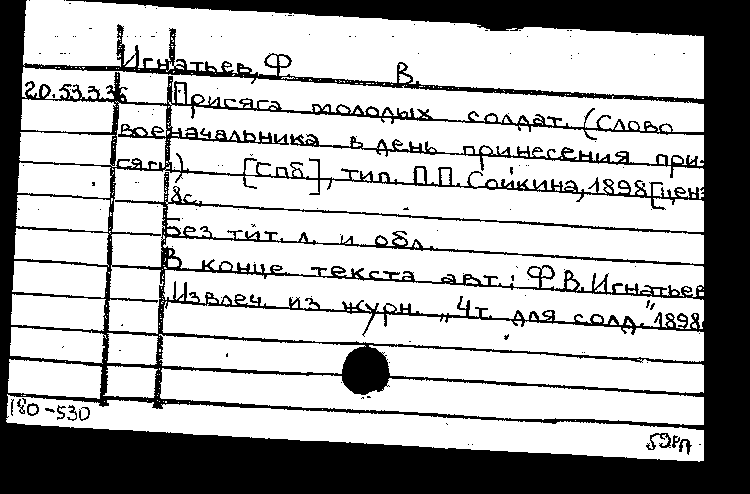 Игнатьев, Ф В.
20.53.3.36 Присяга молодых солдат. (Слово
военачальника в день принесения при-
сяги). [Спб.], тип. П.П. Сойкина, 1898 [ценз
8с.
Без тит. л. и обл.
В конце текста авт.: Ф.В. Игнатьев
Извлеч. из журн. „Чт. для солд." 1898
180-530